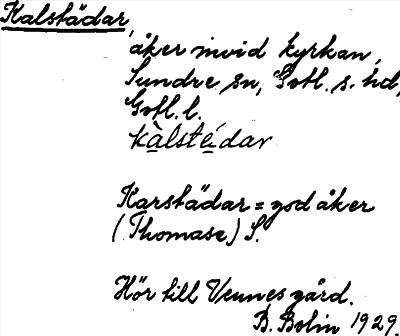 Kalstädar,
åker invid kyrkan,
Sundre sn, Gotl. s. hd,
Gotl. l.
kàlstédar
Karstädar = god åker
(Thomasse) S.
Hör till Vennes gård.
B. Bolin 1929.